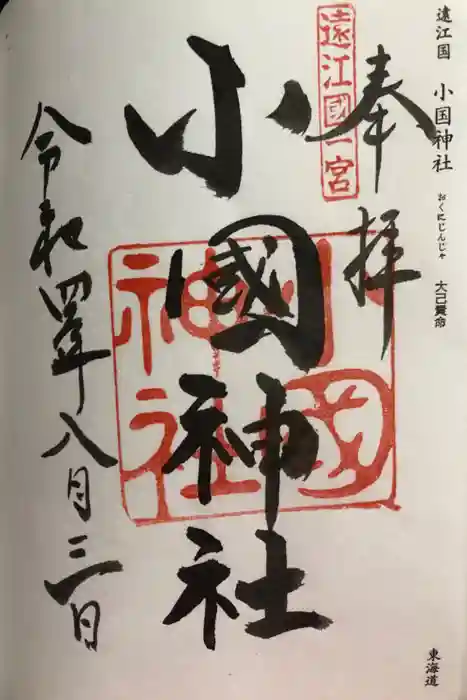 遠江国 小国神社 おくにじんじゃ 大己貴命
東海道
奉拝
遠江國一宮
小國神社
小國神社
令和四年八月三日